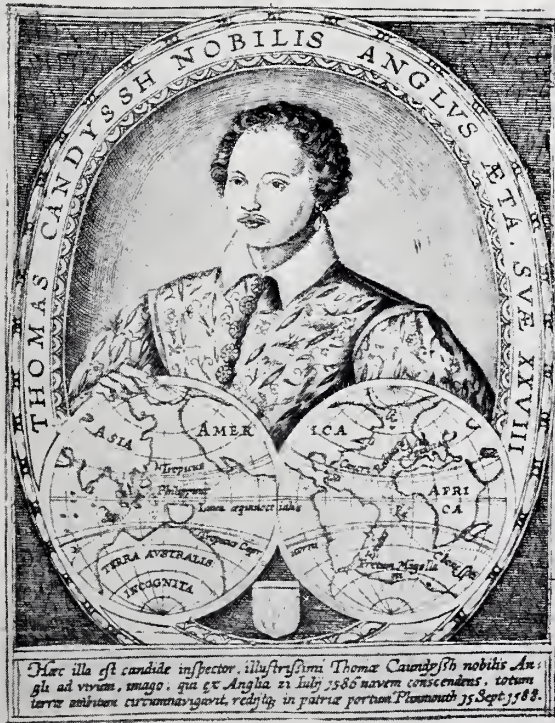 THOMAS CANDYSSH NOBILIS ANGLVS ÆTA. SVÆ XXVIII
ASIA
AMER
ICA
Tropicus
Philippinæ
AFRI
CA
TERRA AVSTRALIS
INCOGNITA
Fretum Magella
Hæc illa est candide inspector, illustrissimi Thomæ Caundyssh nobilis An:
gli ad vivum, imago, qui ex Anglia 21 Iulij 1586 navem conscendens, totum
terræ ambitum circumnavigavit, redijtq; in patriæ portum Plimmouth 15 Sept 1588.